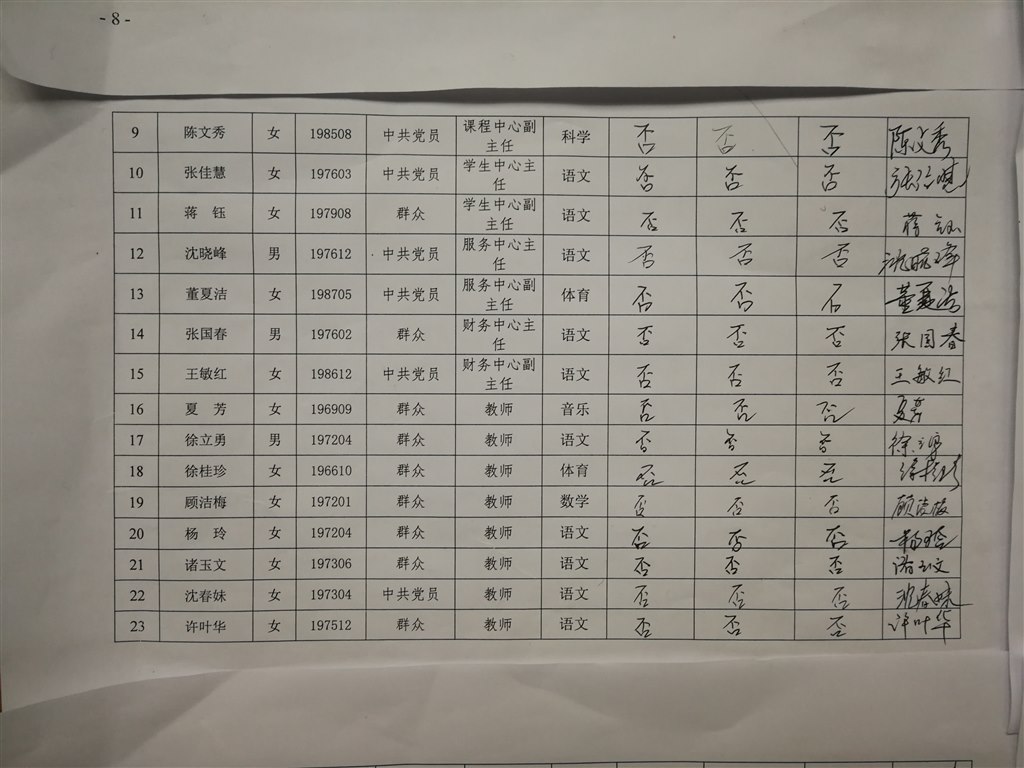 - 8 -
9 陈文秀 女 198508 中共党员 课程中心副主任 科学 否 否 否 陈文秀
10 张佳慧 女 197603 中共党员 学生中心主任 语文 否 否 否 张佳慧
11 蒋 钰 女 197908 群众 学生中心副主任 语文 否 否 否 蒋钰
12 沈晓峰 男 197612 中共党员 服务中心主任 语文 否 否 否 沈晓峰
13 董夏洁 女 198705 中共党员 服务中心副主任 体育 否 否 否 董夏洁
14 张国春 男 197602 群众 财务中心主任 语文 否 否 否 张国春
15 王敏红 女 198612 中共党员 财务中心副主任 语文 否 否 否 王敏红
16 夏 芳 女 196909 群众 教师 音乐 否 否 否 夏芳
17 徐立勇 男 197204 群众 教师 语文 否 否 否 徐立勇
18 徐桂珍 女 196610 群众 教师 体育 否 否 否 徐桂珍
19 顾洁梅 女 197201 群众 教师 数学 否 否 否 顾洁梅
20 杨 玲 女 197204 群众 教师 语文 否 否 否 杨玲
21 诸玉文 女 197306 群众 教师 语文 否 否 否 诸玉文
22 沈春妹 女 197304 中共党员 教师 语文 否 否 否 沈春妹
23 许叶华 女 197512 群众 教师 语文 否 否 否 许叶华